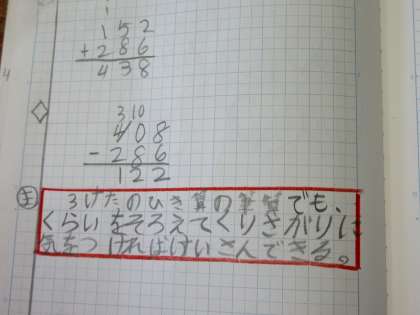 1
152
+286
438
3 10
408
-286
122
㊩ 3けたのひき算の筆算でも、
くらいをそろえてくりさがりに
気をつければけいさんできる。